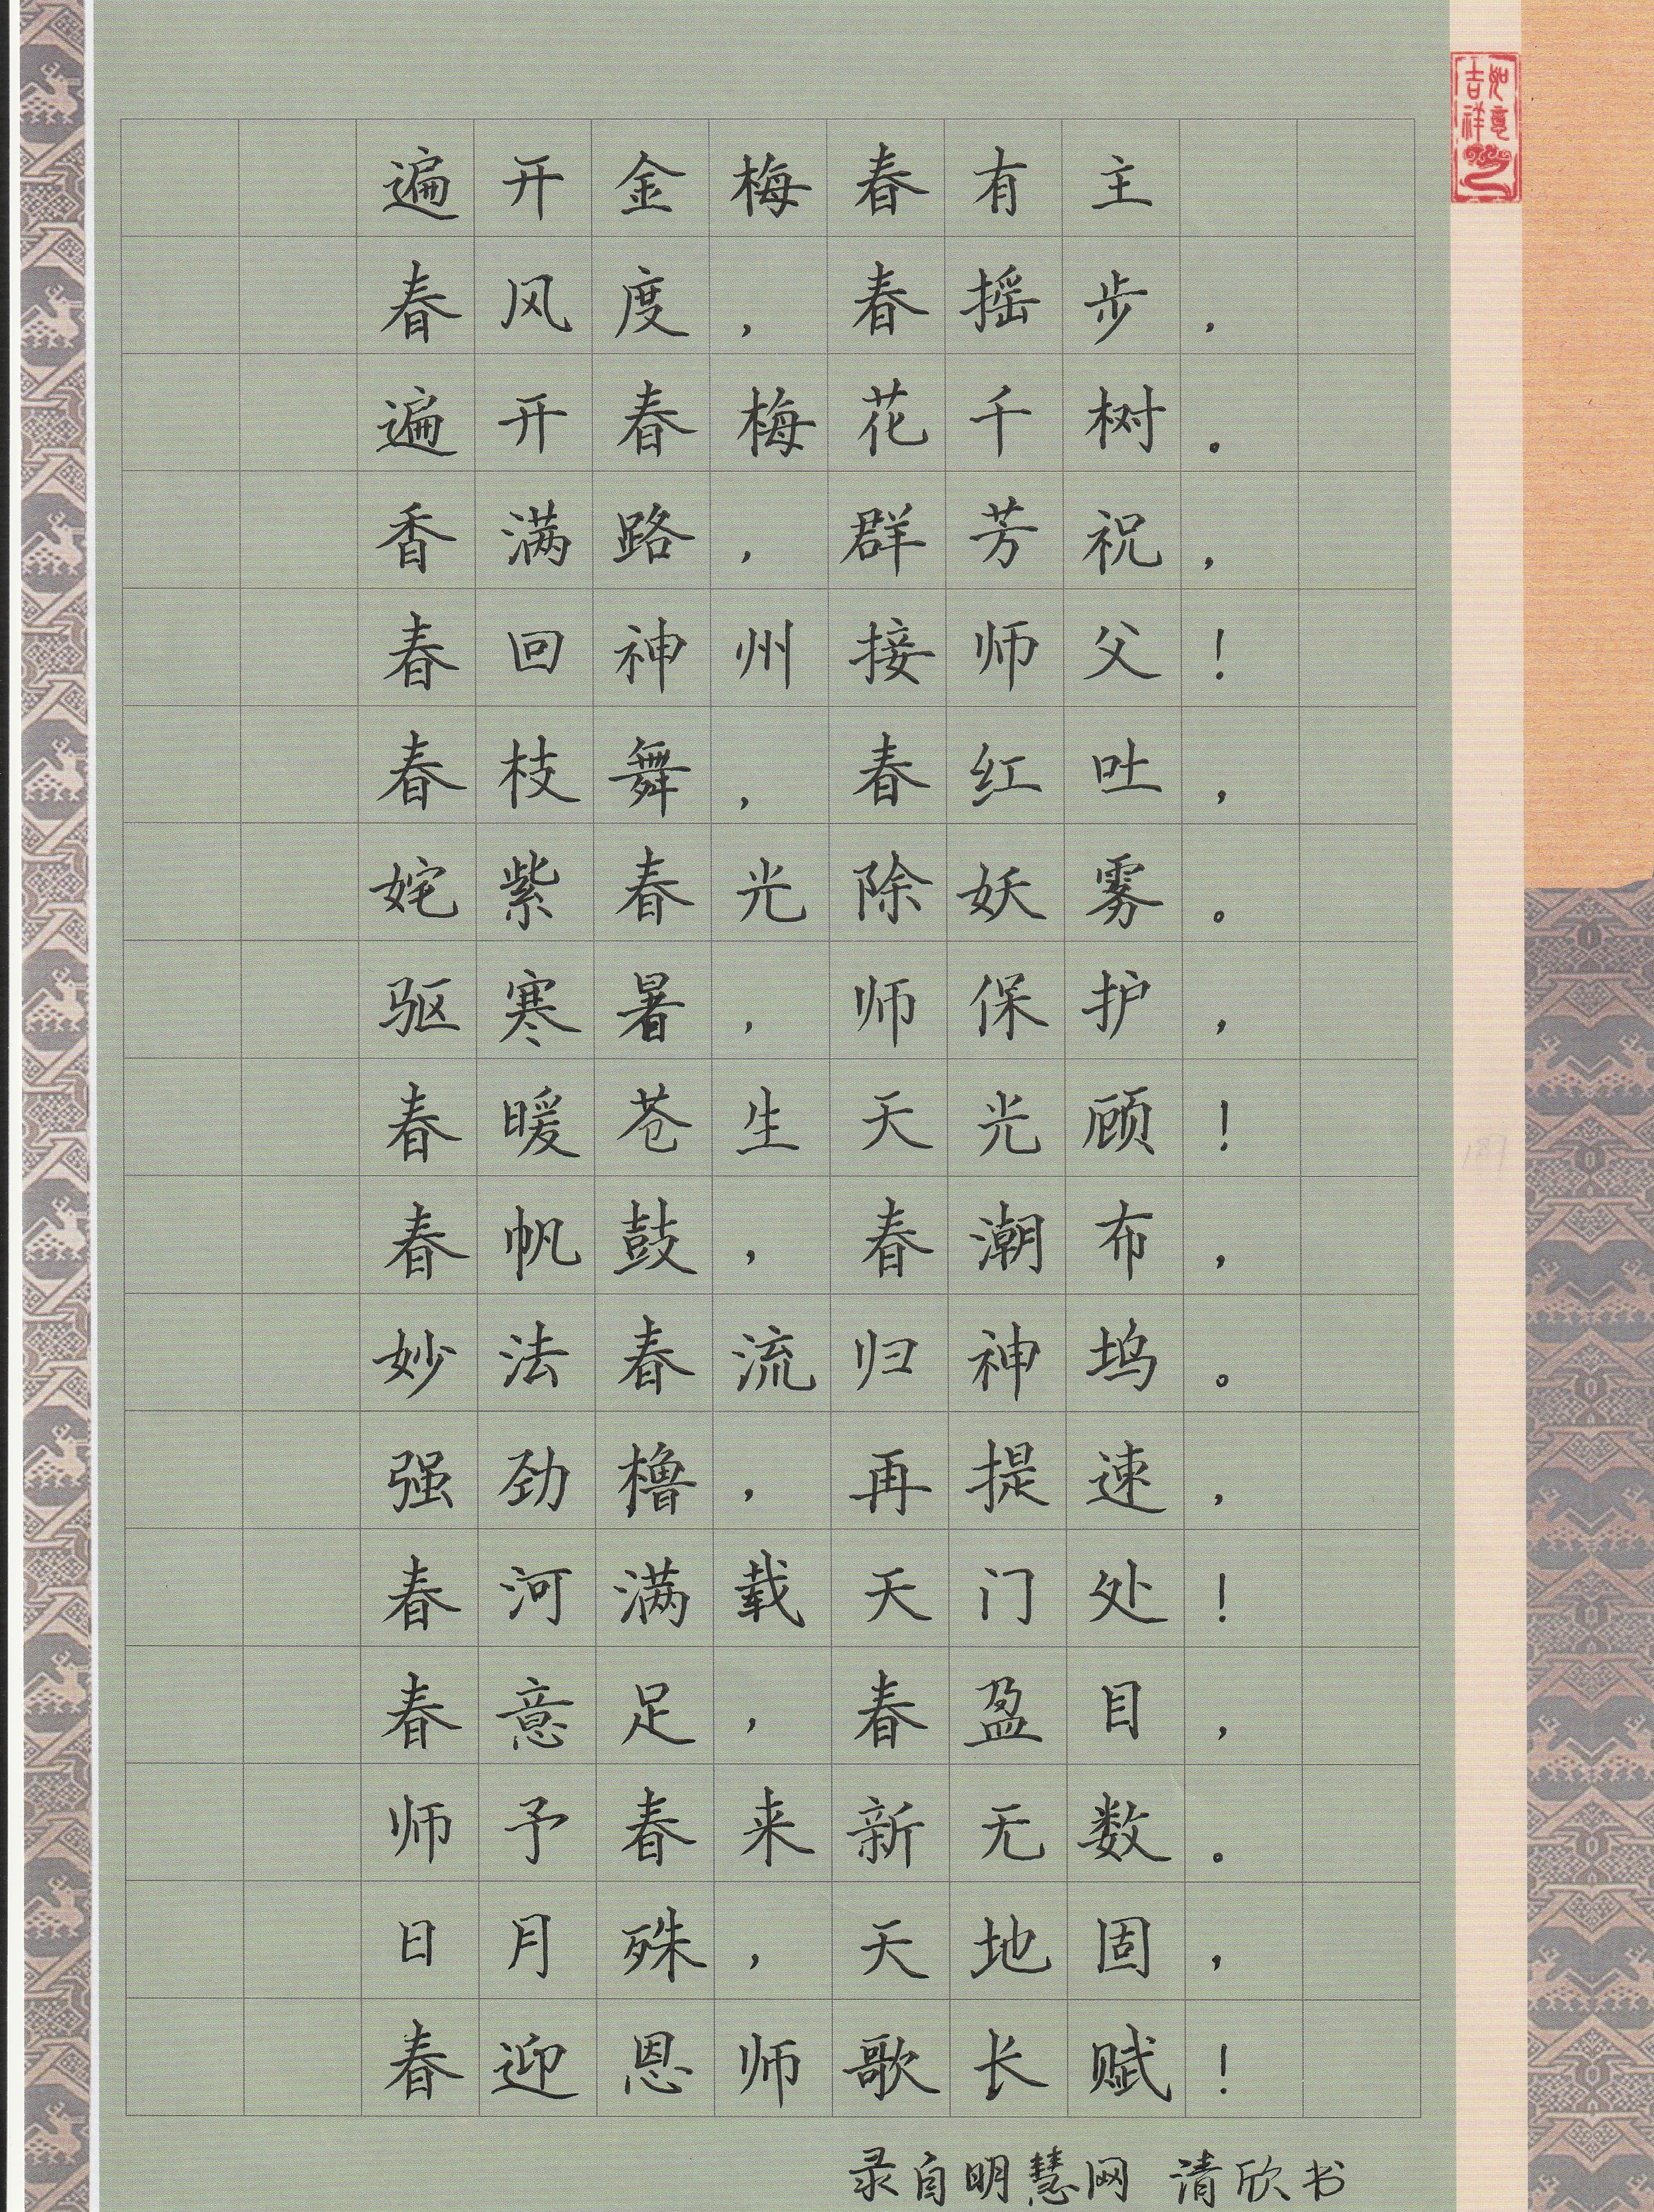 遍开金梅春有主
春风度，春摇步，
遍开春梅花千树。
香满路，群芳祝，
春回神州接师父！
春枝舞，春红吐，
姹紫春光除妖雾。
驱寒暑，师保护，
春暖苍生天光顾！
春帆鼓，春潮布，
妙法春流归神坞。
强劲橹，再提速，
春河满载天门处！
春意足，春盈目，
师予春来新无数。
日月殊，天地固，
春迎恩师歌长赋！
录自明慧网 清欣书
如意吉祥